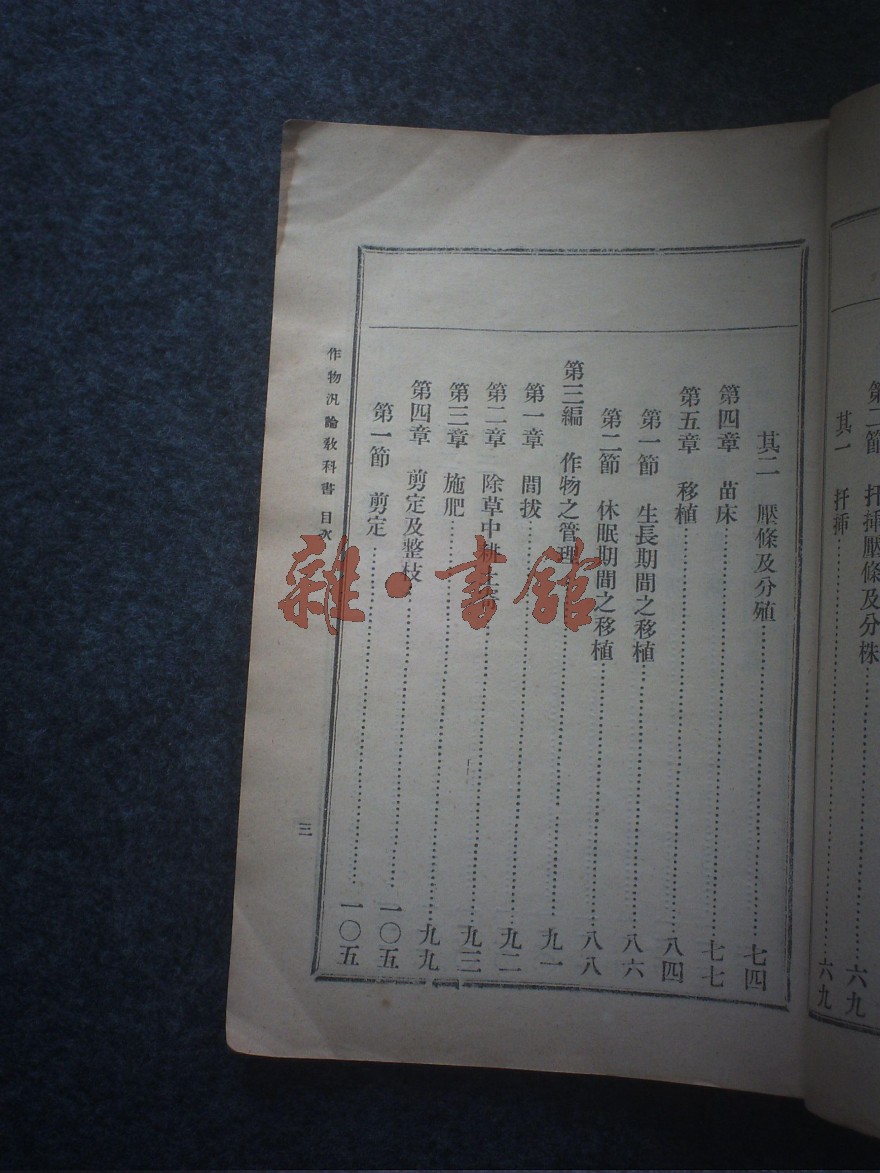 第二節 扦揷壓條及分株……六九
其一 扦揷……六九
其二 壓條及分殖……七四
第四章 苗床……七七
第五章 移植……八四
第一節 生長期間之移植……八六
第二節 休眠期間之移植……八八
第三編 作物之管理……九一
第一章 間拔……九二
第二章 除草中耕……九三
第三章 施肥……九九
第四章 剪定及整枝……一〇五
第一節 剪定……一〇五
作物汎論敎科書 目次
三
雜·書館